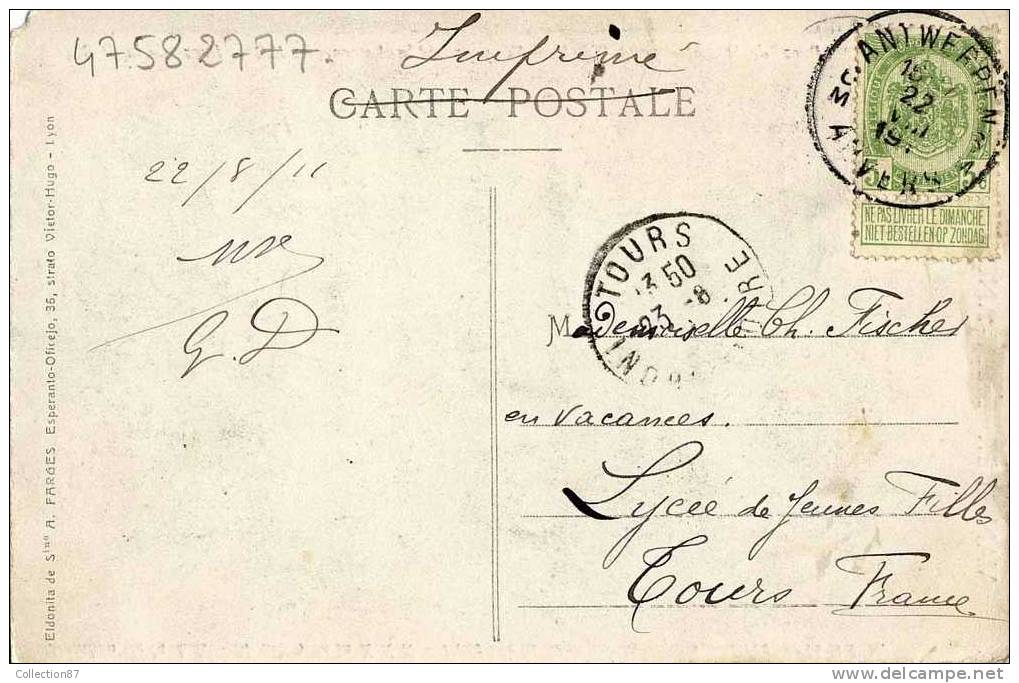 47582777.
Imprimé
CARTE POSTALE
ANTWERPEN
22
VIII
ANVERS
5c 5c
NE PAS LIVRER LE DIMANCHE
NIET BESTELLEN OP ZONDAG
22/8/11
G. D
TOURS
13 50
23 -8
INDRE
RE
Mademoiselle Ch. Fischer
en vacances.
Lycée de Jeunes Filles
Tours France
Eldonita de Sino A. FARGES Esperanto-Oficejo, 36, strato Victor-Hugo - Lyon
Collection87
delcampe.net